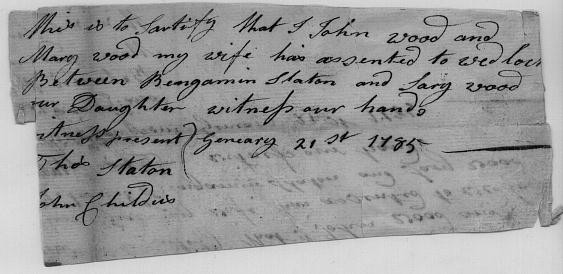 This is to Sartify that I John wood and
Mary wood my wife has assented to wedlock
Between Bengamin Slaton and Sary wood
our Daughter witness our hands
witness present Geneary 21 st 1785
Thos Slaton
John Childres